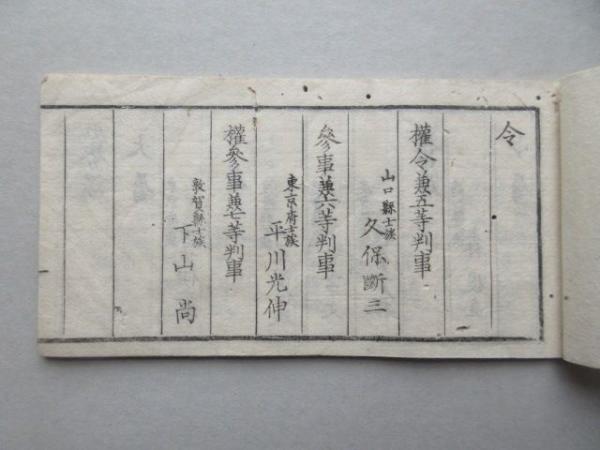 令
權令兼五等判事
山口縣士族
久保斷三
參事兼六等判事
東京府士族
平川光伸
權參事兼七等判事
敦賀縣士族
下山尚